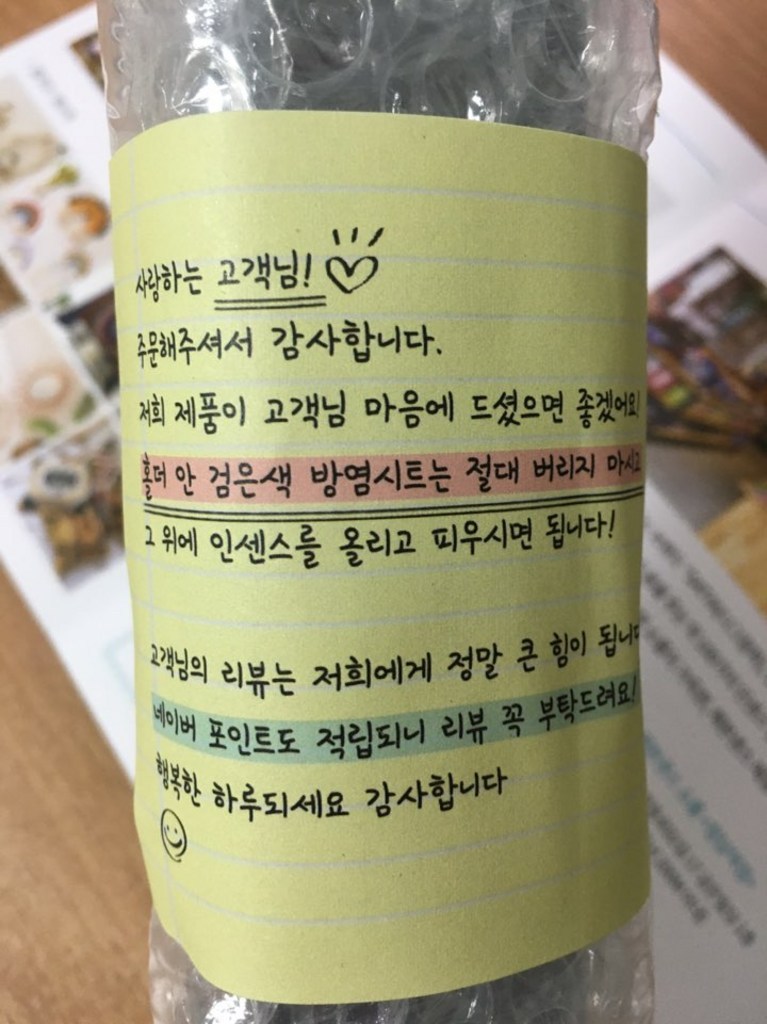 사랑하는 고객님!
주문해주셔서 감사합니다.
저희 제품이 고객님 마음에 드셨으면 좋겠어요!
홀더 안 검은색 방염시트는 절대 버리지 마시고
그 위에 인센스를 올리고 피우시면 됩니다!
고객님의 리뷰는 저희에게 정말 큰 힘이 됩니다
네이버 포인트도 적립되니 리뷰 꼭 부탁드려요!
행복한 하루되세요 감사합니다